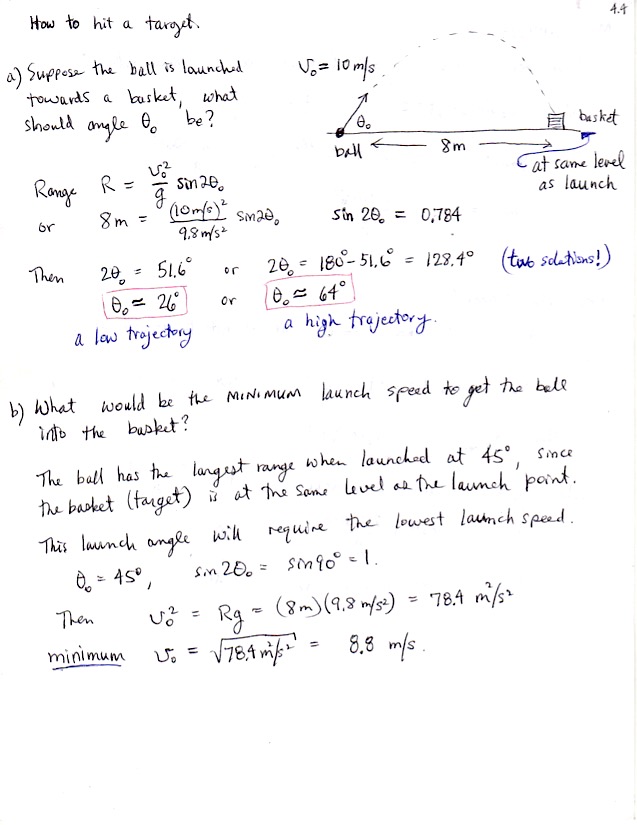 4.4
How to hit a target.
a) Suppose the ball is launched
towards a basket, what
should angle θ₀ be?
v₀ = 10 m/s
θ₀
ball
8m
basket
at same level
as launch
Range R = v₀²/g sin2θ₀
or 8m = (10m/s)²/9.8m/s² sin2θ₀ sin 2θ₀ = 0.784
Then 2θ₀ = 51.6° or 2θ₀ = 180° - 51.6° = 128.4° (two solutions!)
θ₀ ≃ 26° or θ₀ ≃ 64°
a low trajectory a high trajectory.
b) What would be the MINIMUM launch speed to get the ball
into the basket?
The ball has the largest range when launched at 45°, since
the basket (target) is at the same level as the launch point.
This launch angle will require the lowest launch speed.
θ₀ = 45°, sin 2θ₀ = sin90° = 1.
Then v₀² = Rg = (8m)(9.8 m/s²) = 78.4 m²/s²
minimum v₀ = √78.4 m²/s² = 8.8 m/s.